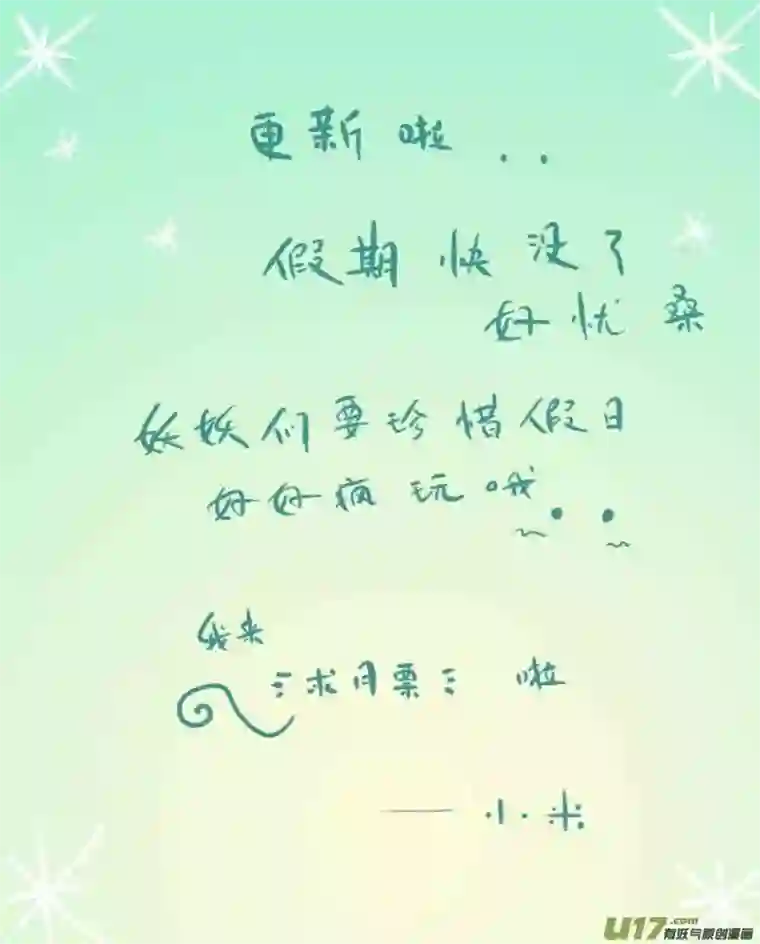 更新啦..
假期快没了
好忧桑
妖妖们要珍惜假日
好好疯玩哦
我来
求月票 啦
——小米
U17.com
有妖气原创漫画